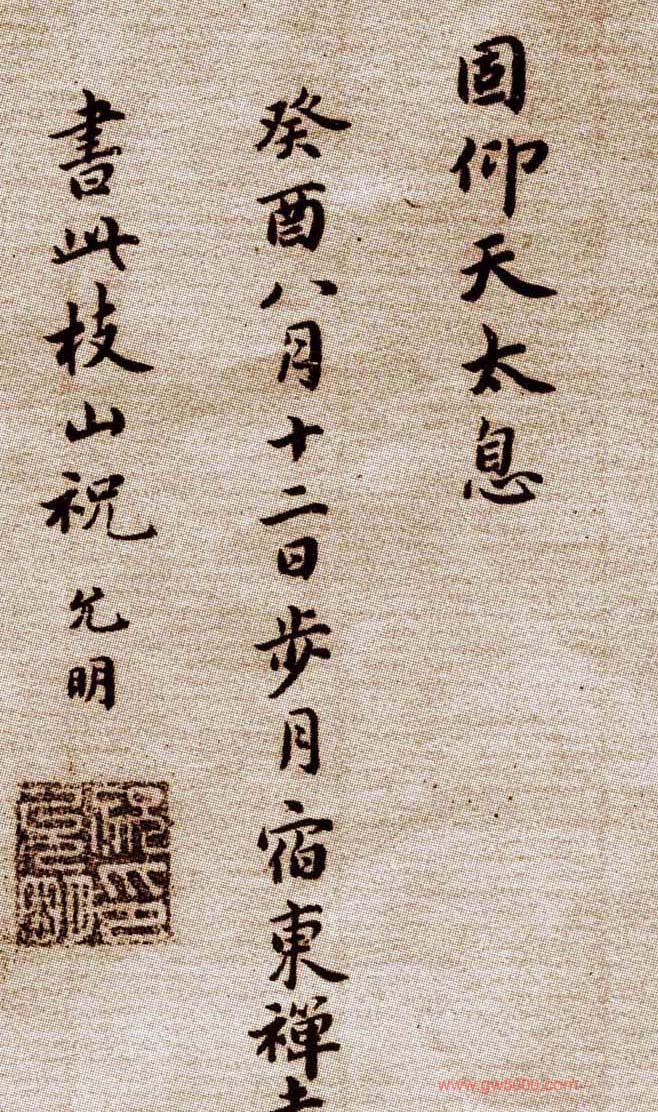 固仰天太息
癸酉八月十二日步月宿東禪寺
書此枝山祝允明
www.gw5000.com